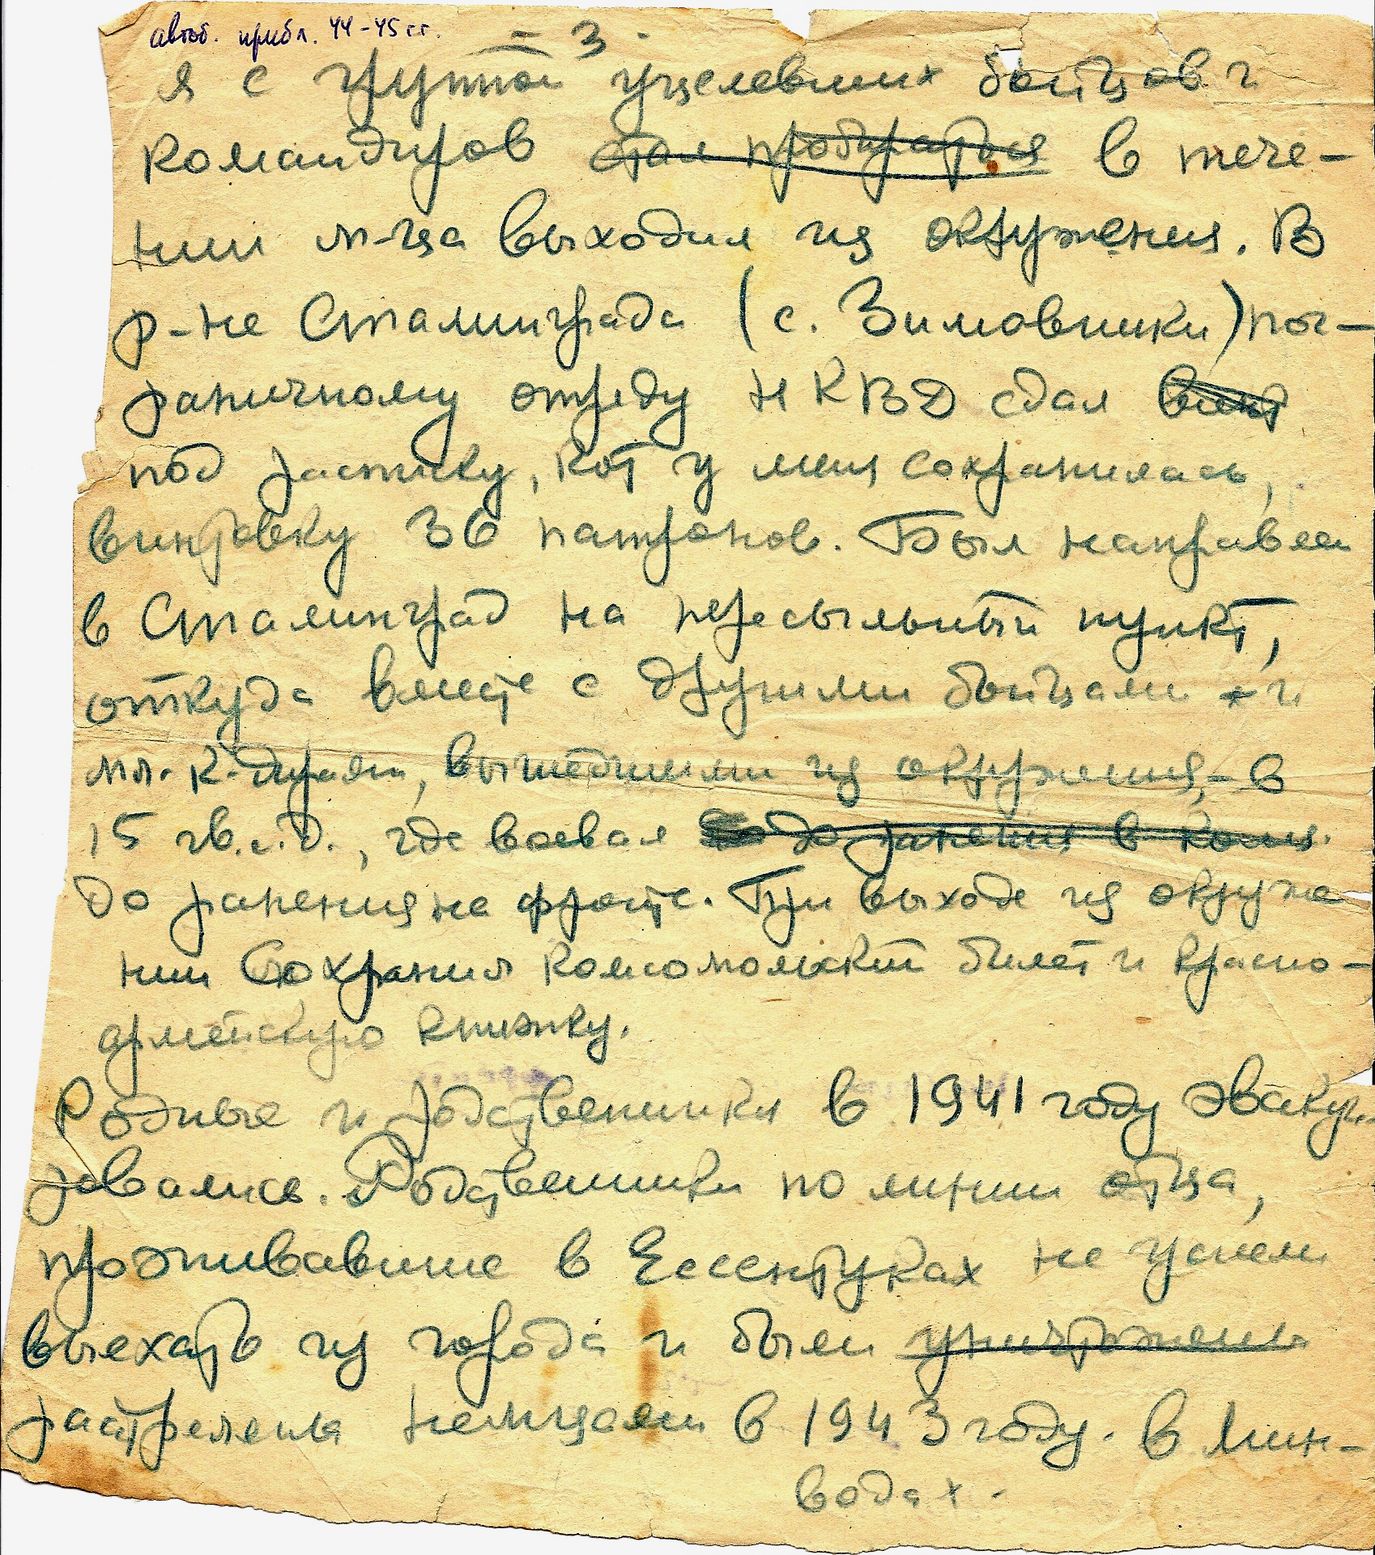 автоб. прибл. 44-45 г.г.
- 3 -
я с группой уцелевших бойцов и
командиров стал пробираться в тече-
нии м-ца выходил из окружения. В
р-не Сталинграда (с. Зимовники) пог-
раничному отряду НКВД сдал винт
под расписку, кот у меня сохранилась,
винтовку 36 патронов. Был направлен
в Сталинград на пересыльный пункт,
откуда вместе с другими бойцами и
мл. к-дирами, вышедшими из окружения, - в
15 гв.с.д., где воевал до ранения в
до ранения на фронте. При выходе из окруже
нии Сохранил комсомольский билет и красно-
армейскую книжку.
Родные и родственники в 1941 году эвакуи-
ровались. Родственники по линии отца,
проживавшие в Ессентуках не успели
выехать из города и были уничтожены
растреляны немцами в 1943 году. в Мин-
водах.